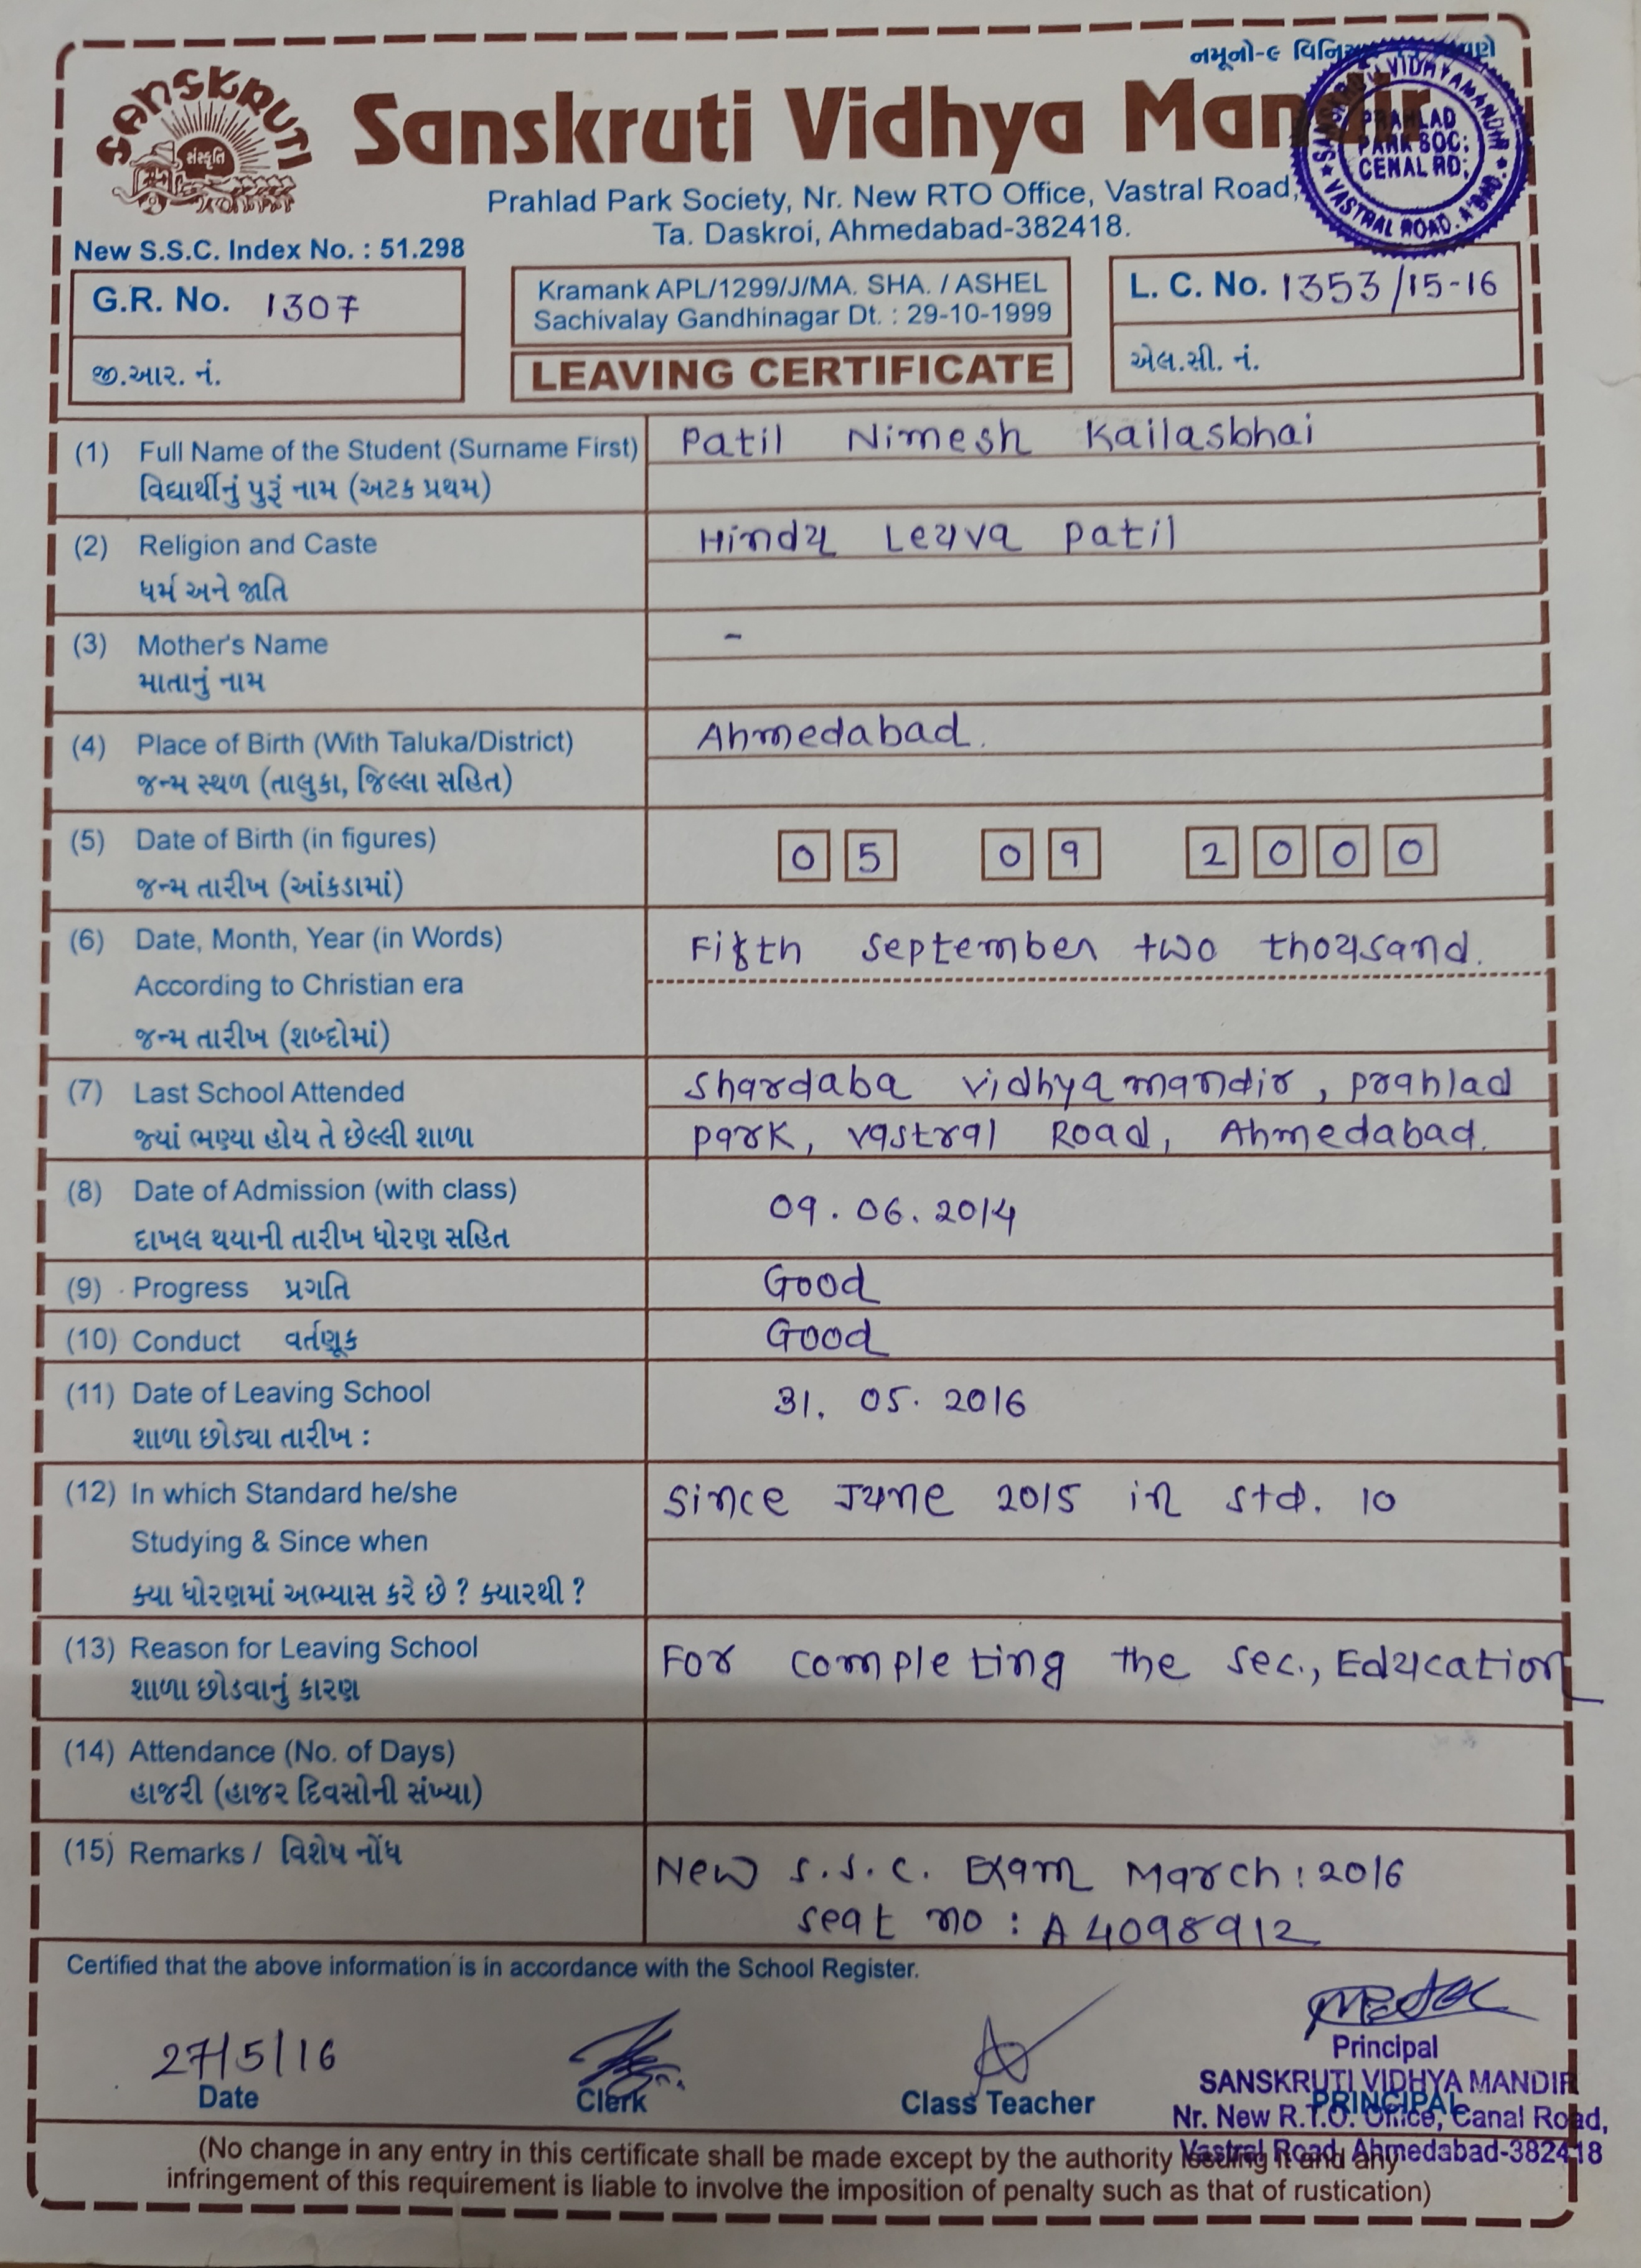 નમૂનો-૯
SANSKRUTI
સંસ્કૃતિ
Sanskruti Vidhya Mandir
SANSKRUTI VIDHYAMANDIR
PRAHLAD
PARK SOC:
CENAL RD;
VASTRAL ROAD. A'BAD.
Prahlad Park Society, Nr. New RTO Office, Vastral Road,
Ta. Daskroi, Ahmedabad-382418.
New S.S.C. Index No. : 51.298
G.R. No. 1307
જી.આર. નં.
Kramank APL/1299/J/MA. SHA. / ASHEL
Sachivalay Gandhinagar Dt. : 29-10-1999
LEAVING CERTIFICATE
L. C. No. 1353/15-16
એલ.સી. નં.
(1) Full Name of the Student (Surname First) Patil Nimesh Kailasbhai
વિદ્યાર્થીનું પુરૂં નામ (અટક પ્રથમ)
(2) Religion and Caste Hindu Leuva Patil
ધર્મ અને જાતિ
(3) Mother's Name -
માતાનું નામ
(4) Place of Birth (With Taluka/District) Ahmedabad.
જન્મ સ્થળ (તાલુકા, જિલ્લા સહિત)
(5) Date of Birth (in figures) 05 09 2000
જન્મ તારીખ (આંકડામાં)
(6) Date, Month, Year (in Words) Fifth September two thousand.
According to Christian era
જન્મ તારીખ (શબ્દોમાં)
(7) Last School Attended Shardaba Vidhyamandir, Prahlad
જ્યાં ભણ્યા હોય તે છેલ્લી શાળા Park, Vastral Road, Ahmedabad.
(8) Date of Admission (with class) 09.06.2014
દાખલ થયાની તારીખ ધોરણ સહિત
(9) Progress પ્રગતિ Good
(10) Conduct વર્તણૂક Good
(11) Date of Leaving School 31.05.2016
શાળા છોડ્યા તારીખ :
(12) In which Standard he/she Since June 2015 in std. 10
Studying & Since when
ક્યા ધોરણમાં અભ્યાસ કરે છે ? ક્યારથી ?
(13) Reason for Leaving School For completing the Sec., Education
શાળા છોડવાનું કારણ
(14) Attendance (No. of Days)
હાજરી (હાજર દિવસોની સંખ્યા)
(15) Remarks / વિશેષ નોંધ New S.S.C. Exam March: 2016
Seat no : A 4098912
Certified that the above information is in accordance with the School Register.
27/5/16
Date
Clerk
Class Teacher
PRINCIPAL
Principal
SANSKRUTI VIDHYA MANDIR
Nr. New R.T.O. Office, Canal Road,
Vastral Road, Ahmedabad-382418
(No change in any entry in this certificate shall be made except by the authority issuing it and any
infringement of this requirement is liable to involve the imposition of penalty such as that of rustication)